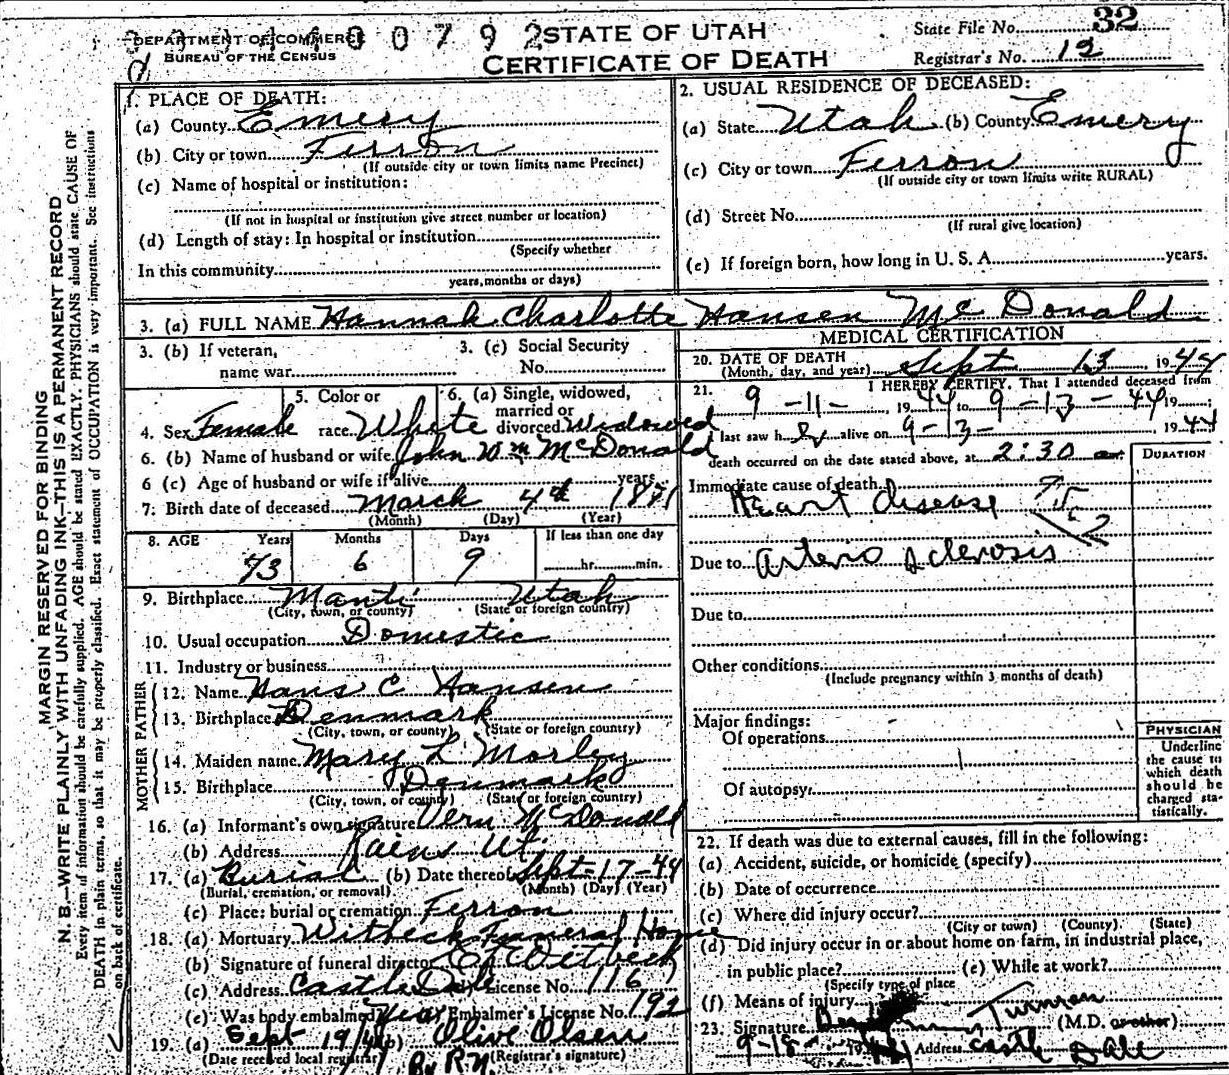 DEPARTMENT OF COMMERCE
BUREAU OF THE CENSUS
0 0 7 9 2
STATE OF UTAH
CERTIFICATE OF DEATH
State File No. 32
Registrar's No. 12
1. PLACE OF DEATH:
(a) County Emery
(b) City or town Ferron
(If outside city or town limits name Precinct)
(c) Name of hospital or institution:
(If not in hospital or institution give street number or location)
(d) Length of stay: In hospital or institution
(Specify whether
In this community
years, months or days)
2. USUAL RESIDENCE OF DECEASED:
(a) State Utah (b) County Emery
(c) City or town Ferron
(If outside city or town limits write RURAL)
(d) Street No.
(If rural give location)
(e) If foreign born, how long in U. S. A. years.
3. (a) FULL NAME Hannah Charlotte Hansen McDonald
3. (b) If veteran, name war
3. (c) Social Security No.
4. Sex Female
5. Color or race White
6. (a) Single, widowed, married or divorced Widowed
6. (b) Name of husband or wife John Wm McDonald
6 (c) Age of husband or wife if alive years
7. Birth date of deceased March 4th 1871
(Month) (Day) (Year)
8. AGE Years Months Days If less than one day
73 6 9 hr. min.
9. Birthplace Manti Utah
(City, town, or county) (State or foreign country)
10. Usual occupation Domestic
11. Industry or business
FATHER
12. Name Hans C Hansen
13. Birthplace Denmark
(City, town, or county) (State or foreign country)
MOTHER
14. Maiden name Mary L Morley
15. Birthplace Denmark
(City, town, or county) (State or foreign country)
16. (a) Informant's own signature Vern McDonald
(b) Address Rains Ut.
17. (a) Burial (b) Date thereof Sept-17-44
(Burial, cremation, or removal) (Month) (Day) (Year)
(c) Place: burial or cremation Ferron
18. (a) Mortuary Witbeck Funeral Home
(b) Signature of funeral director Witbeck
(c) Address Castle Dale License No. 116
(e) Was body embalmed Yes Embalmer's License No. 192
19. (a) Sept 19/44 (b) Olive Olsen
(Date received local registrar) By R.N. (Registrar's signature)
MEDICAL CERTIFICATION
20. DATE OF DEATH
(Month, day, and year) Sept 13, 1944
21. I HEREBY CERTIFY, That I attended deceased from
9-11-, 1944 to 9-13-44, 19 ;
last saw her alive on 9-13- 1944
death occurred on the date stated above, at 2:30 am
DURATION
Immediate cause of death
Heart disease
Due to arterio sclerosis
Due to
Other conditions
(Include pregnancy within 3 months of death)
Major findings:
Of operations
Of autopsy
PHYSICIAN
Underline the cause to which death should be charged statistically.
22. If death was due to external causes, fill in the following:
(a) Accident, suicide, or homicide (specify)
(b) Date of occurrence
(c) Where did injury occur?
(City or town) (County) (State)
(d) Did injury occur in or about home on farm, in industrial place,
in public place? (e) While at work?
(Specify type of place
(f) Means of injury
23. Signature Turman (M.D. or other)
9-18- Address Castle Dale
MARGIN RESERVED FOR BINDING
N. B.—WRITE PLAINLY WITH UNFADING INK—THIS IS A PERMANENT RECORD
Every item of information should be carefully supplied. AGE should be stated EXACTLY. PHYSICIANS should state CAUSE OF
DEATH in plain terms, so that it may be properly classified. Exact statement of OCCUPATION is very important. See instructions
on back of certificate.